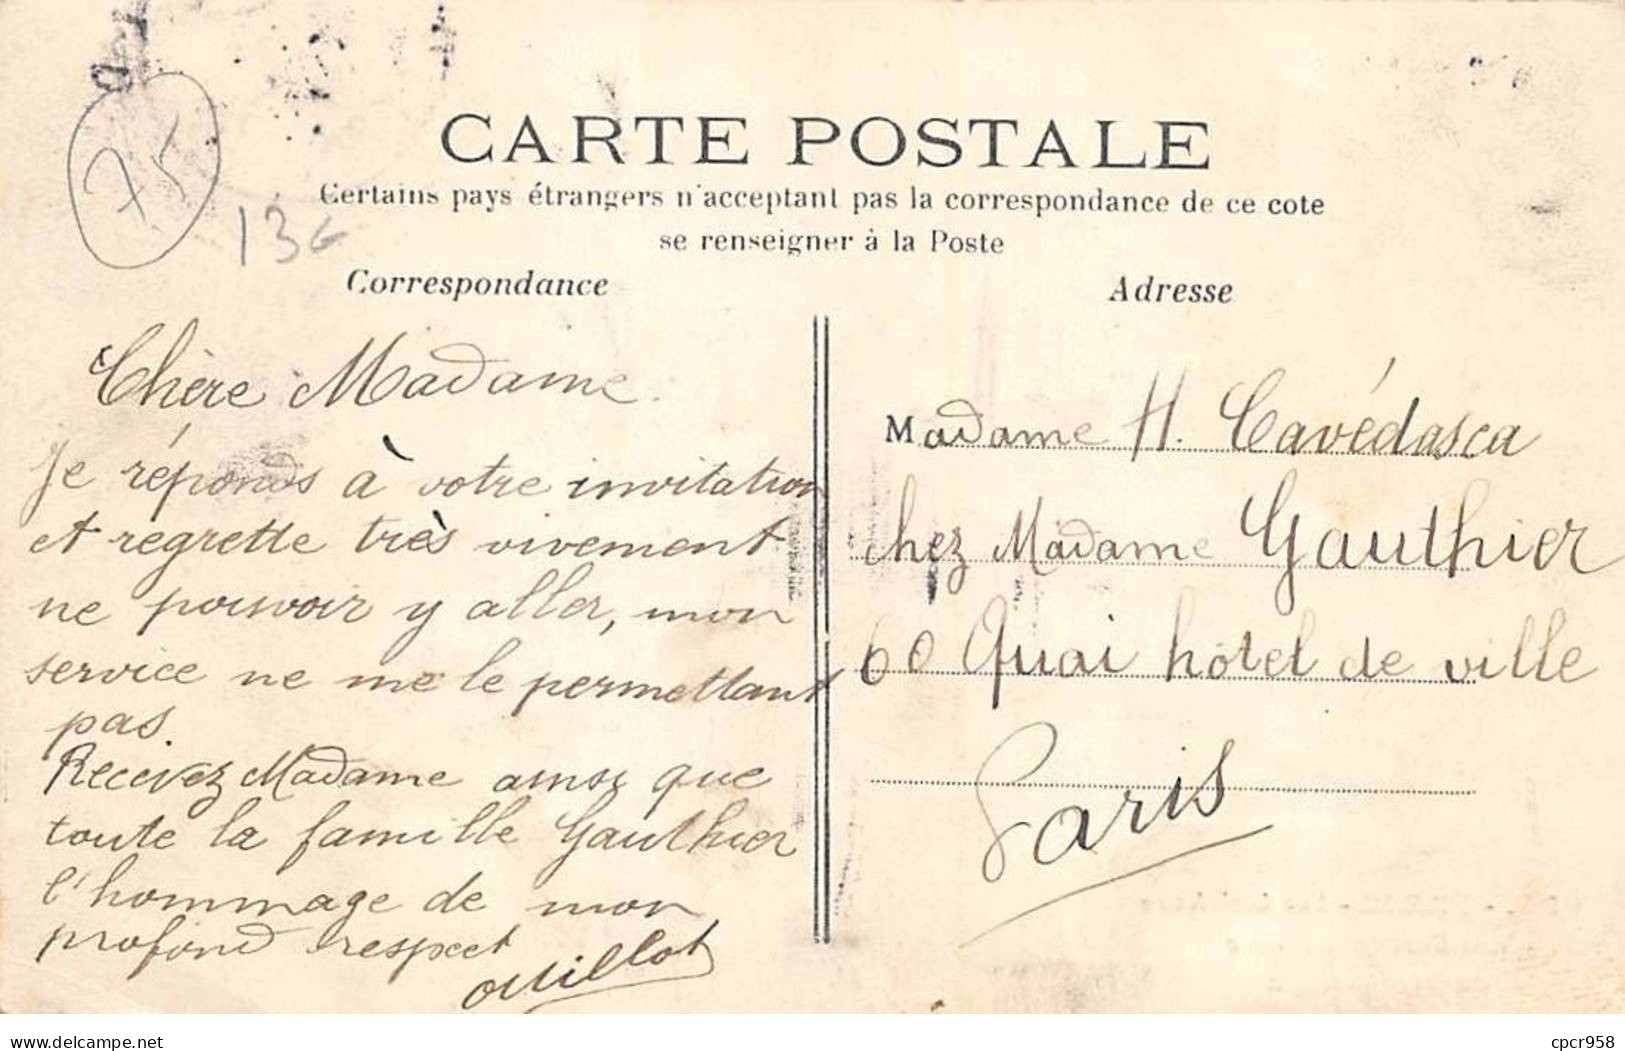 75
13€
CARTE POSTALE
Certains pays étrangers n'acceptant pas la correspondance de ce cote
se renseigner à la Poste
Correspondance
Adresse
Chère Madame.
Je réponds à votre invitation
et regrette très vivement
ne pouvoir y aller, mon
service ne me le permettant
pas.
Recevez Madame ainsi que
toute la famille Gauthier
l'hommage de mon
profond respect
Ouillot
Madame H. Cavédasca
chez Madame Gauthier
60 Quai hôtel de ville
Paris
www.delcampe.net
cpcr958